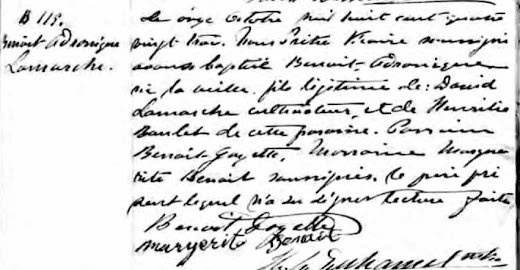 B 115.
Benoit Adronique
Lamarche.
Le onze Octobre mil huit cent quatre
vingt trois Nous Prêtre Vicaire soussigné
avons baptisé Benoit-Adronique
né la veille fils légitime de: David
Lamarche cultivateur, et de Henriette
Baulet de cette paroisse. Parrain
Benoit Goyette, Marraine Margue
rite Benoit soussignés, le père pré
sent lequel n'a su signer lecture faite
Benoit Goyette
Marguerite Benoit
Duhamel